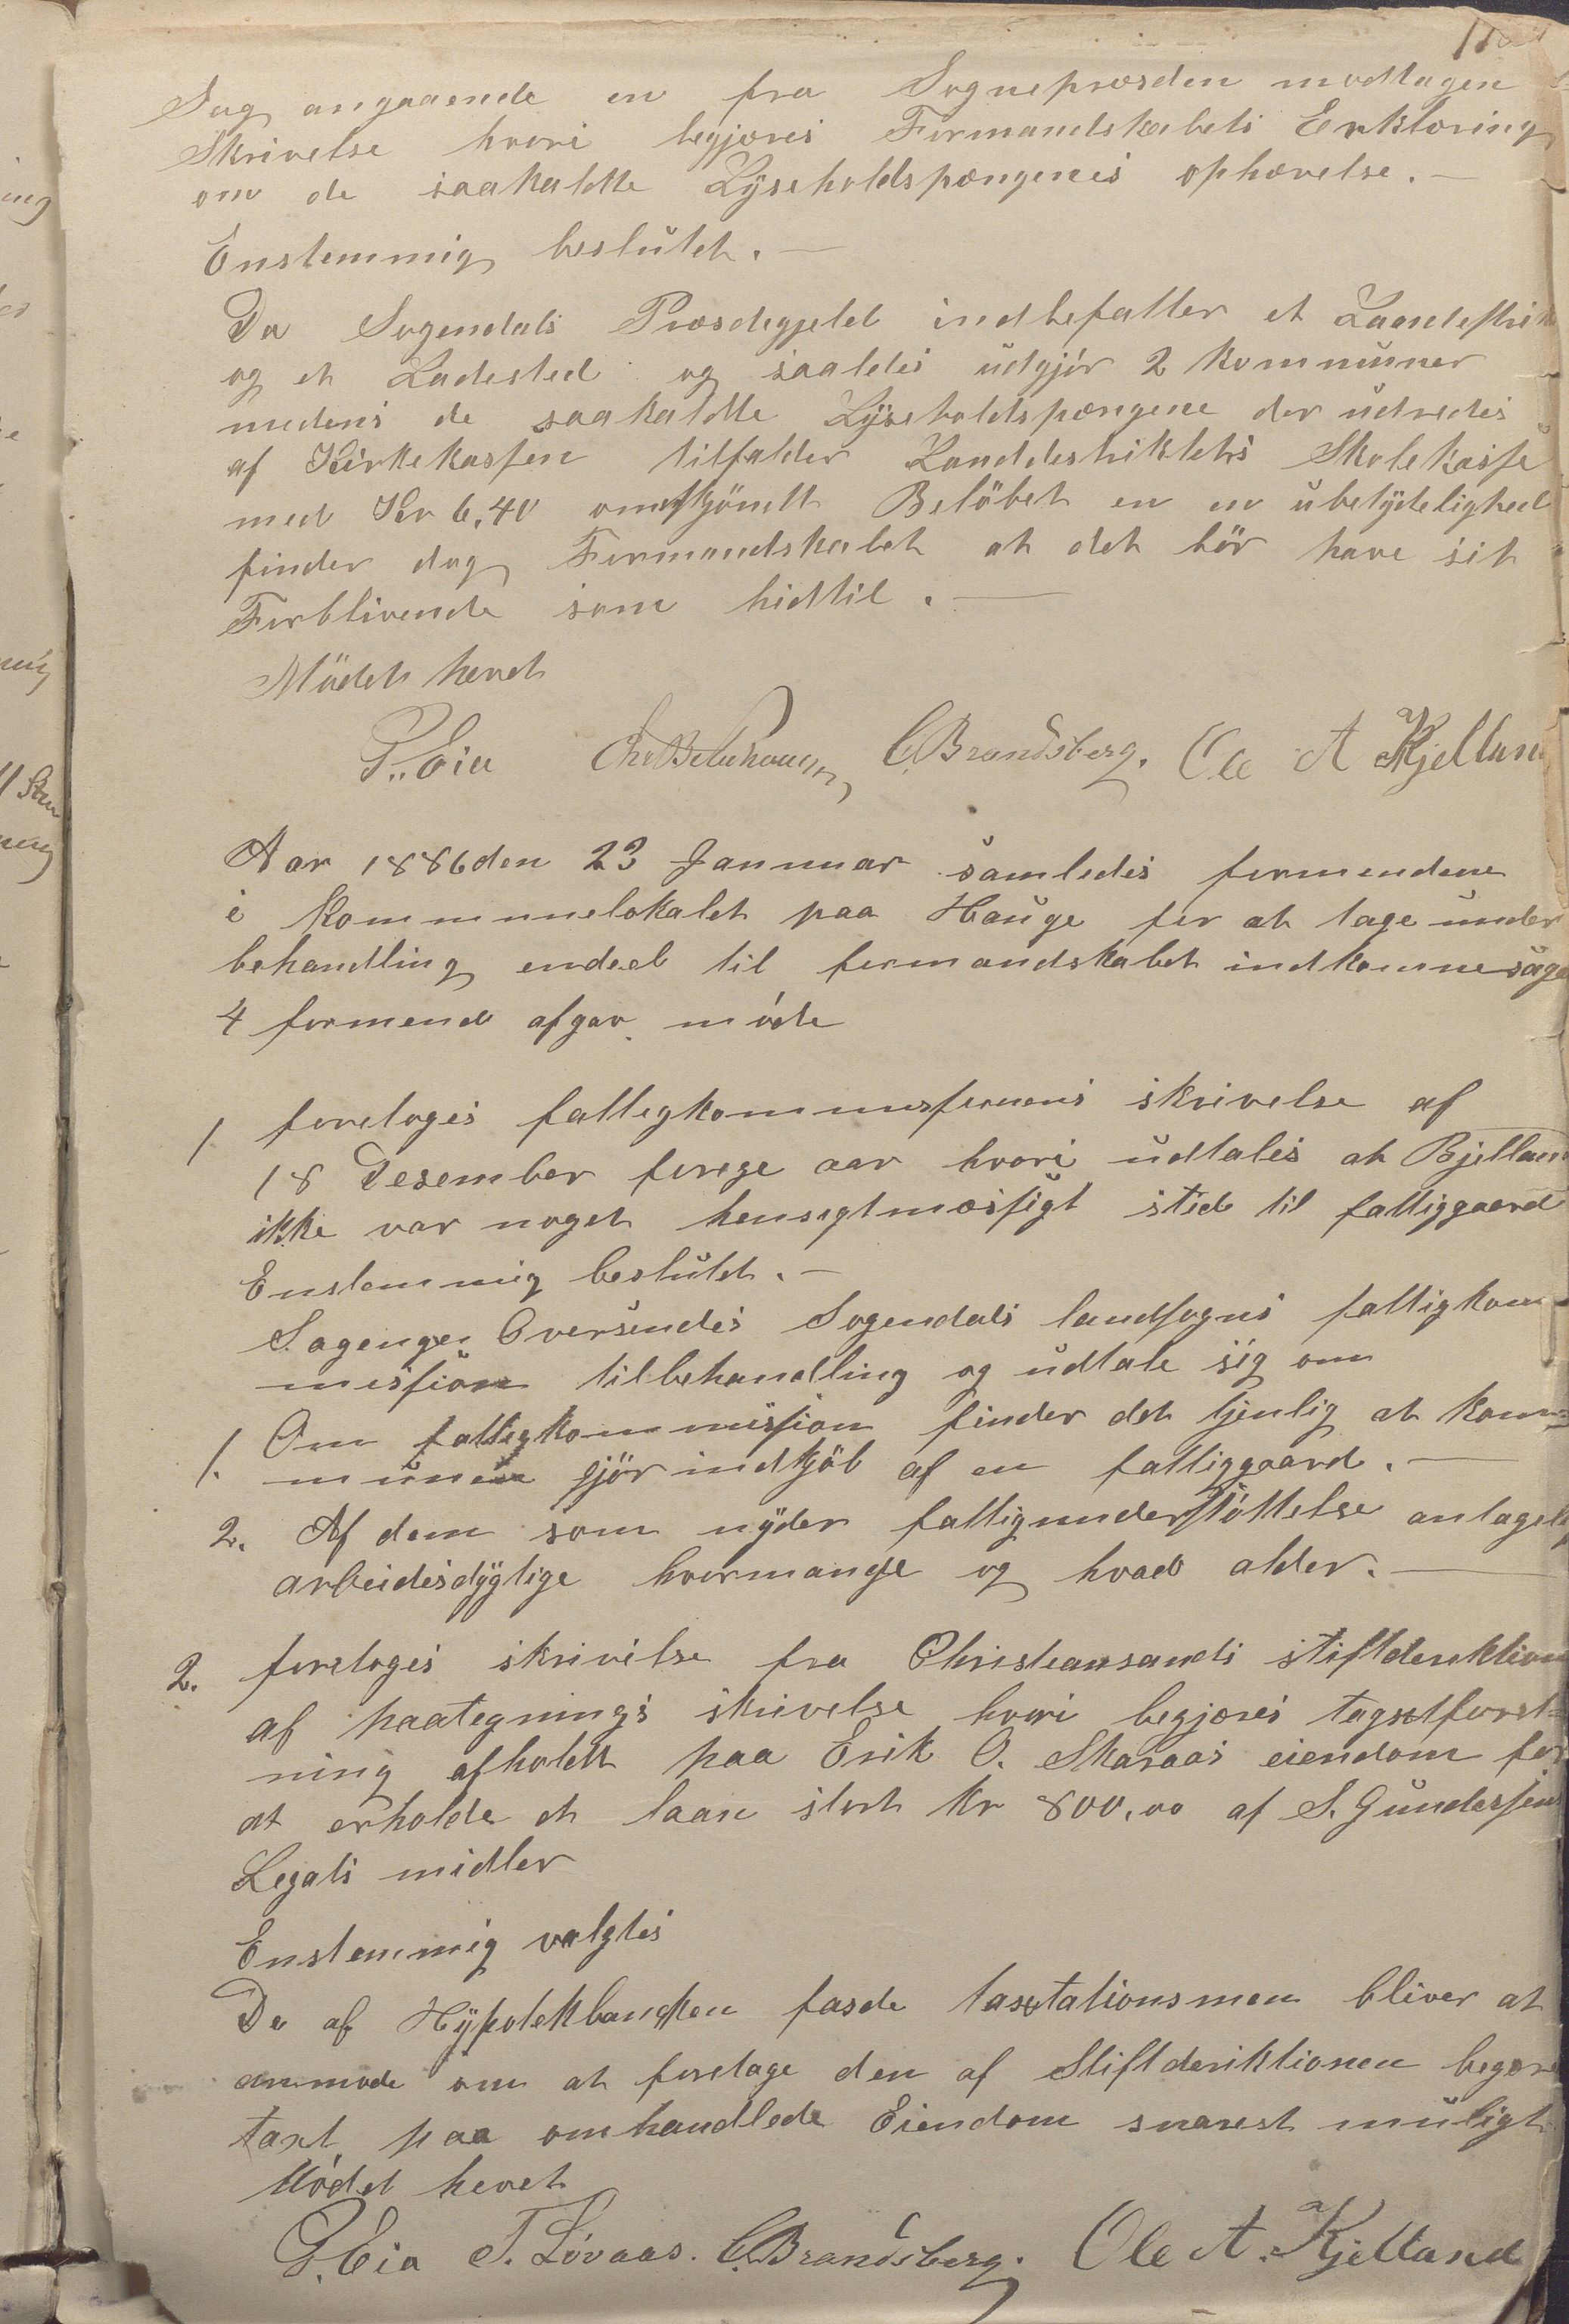 Sag angaaende en fra Sognepræsden modtagen
Skrivelse hvori begjæres Formandskabets Erklæring
om de saakaldte Lyseholdspængenes ophævelse. —
Enstemmig beslutet. —
Da Sogendals Præsdegjeld indbefatter et Landestrik
og et Ladested og saaledes udgjör 2 Kommuner
medens de saakaldte Lyseholdspængene der udredes
af Kirkekassen tilfalder Landdestriktets Skolekasse
med Kr 6,40 omskjöndt Belöbet en en ubetydelighed
finder dog Formandskabet at det bör have sit
Forblivende som hidtil. —
Mödet hevet
P. Eia C. Brandsberg. Ole A Kjelland
Aar 1886 den 23 Januar samledes formendene
i Kommunelokalet paa Hauge for at tage under
behandling endeel til formandskabet indkomne sage
4 formend afgav möde
1 foretoges fattigkommisionens skrivelse af
18 Desember forege aar hvori udtales at Bjelland
ikke var noget hensigtmæssigt sted til fattiggaard
Enstemmig beslutet. —
Sagengen Oversendes Sogendals landsogns fattigkom
mission til behandling og udtale sig om
1. Om fattigkommission finder det tjenlig at kom=
munen gjör indkjöb af en fattiggaard. —
2. Af dem som nyder fattigunderstöttelse antagelig
arbeidesdygtige hvormange og hvad alder. —
2. foretoges skrivelse fra Christiansands stiftderiktion
af paategnings skrivelse hvori begjæres tagstforret=
ning afholdt paa Erik O. Skaraas eiendom for
at erholde et laan stort Kr 800,00 af S. Gundersens
Legats midler
Enstemmig valgtes
De af Hypotekbanken fasde taxtationsmen bliver at
anmode om at foretage den af Stiftderiktionen begære
taxt paa omhandlede Eiendom snarest muligt
Mödet hevet
P. Eia T. Lövaas. C. Brandsberg. Ole A. Kjelland